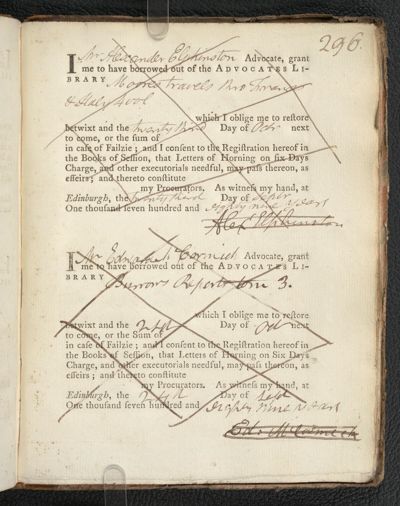 296.
I Mr Alexander Elphinston Advocate, grant
me to have borrowed out of the ADVOCATES LI-
BRARY Moores travels thro France
& Italy 4 vol
which I oblige me to restore
betwixt and the twenty third Day of Octr next
to come, or the sum of
in case of Failzie; and I consent to the Registration hereof in
the Books of Session, that Letters of Horning on six Days
Charge, and other executorials needful, may pass thereon, as
effeirs; and thereto constitute
my Procurators. As witness my hand, at
Edinburgh, the twenty third Day of Septr
One thousand seven hundred and eighty nine years
Alexr Elphinston
I Mr Edward McCormick Advocate, grant
me to have borrowed out of the ADVOCATES LI-
BRARY Burrows Reports vm 3.
which I oblige me to restore
betwixt and the 24th Day of Octr next
to come, or the Sum of
in case of Failzie; and I consent to the Registration hereof in
the Books of Session, that Letters of Horning on Six Days
Charge, and other executorials needful, may pass thereon, as
effeirs; and thereto constitute
my Procurators. As witness my hand, at
Edinburgh, the 24th Day of Sept
One thousand seven hundred and eighty nine years
Ed: McCormick